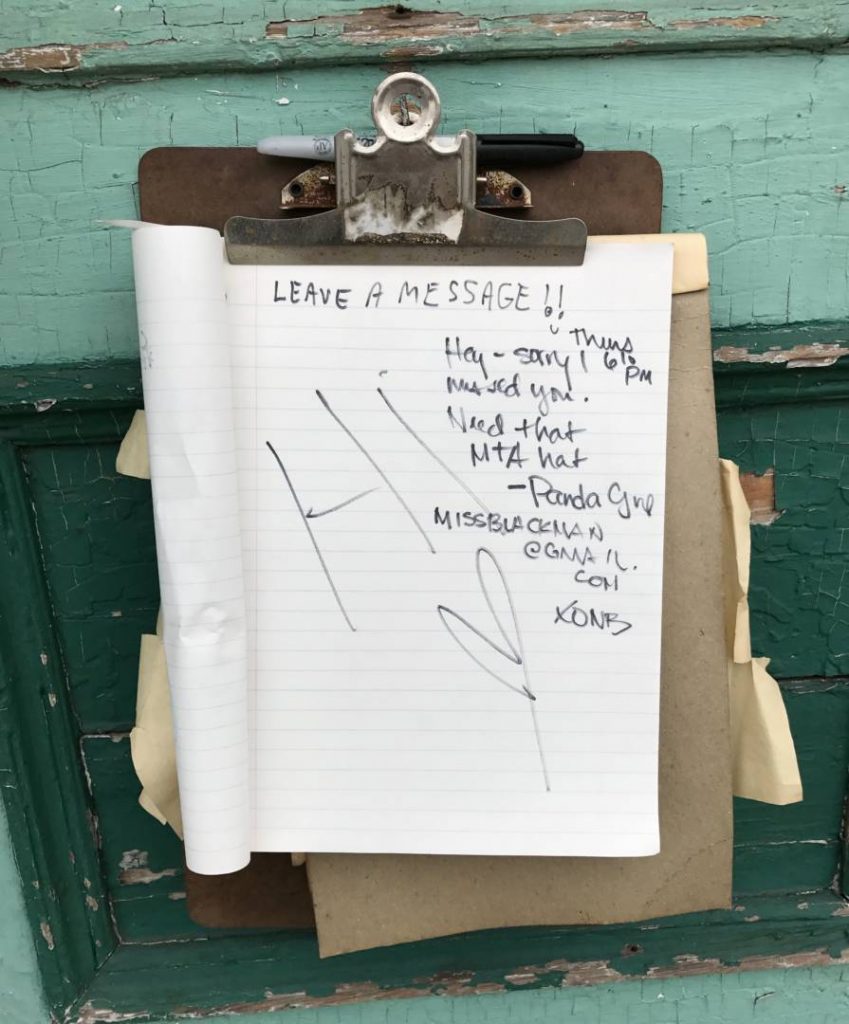 LEAVE A MESSAGE!!
Thurs
Hey - sorry I 6:10
PM
missed you.
Need that
MTA hat
- Panda Girl
MISSBLACKMAN
@GMAIL.
COM
XONB
Hi